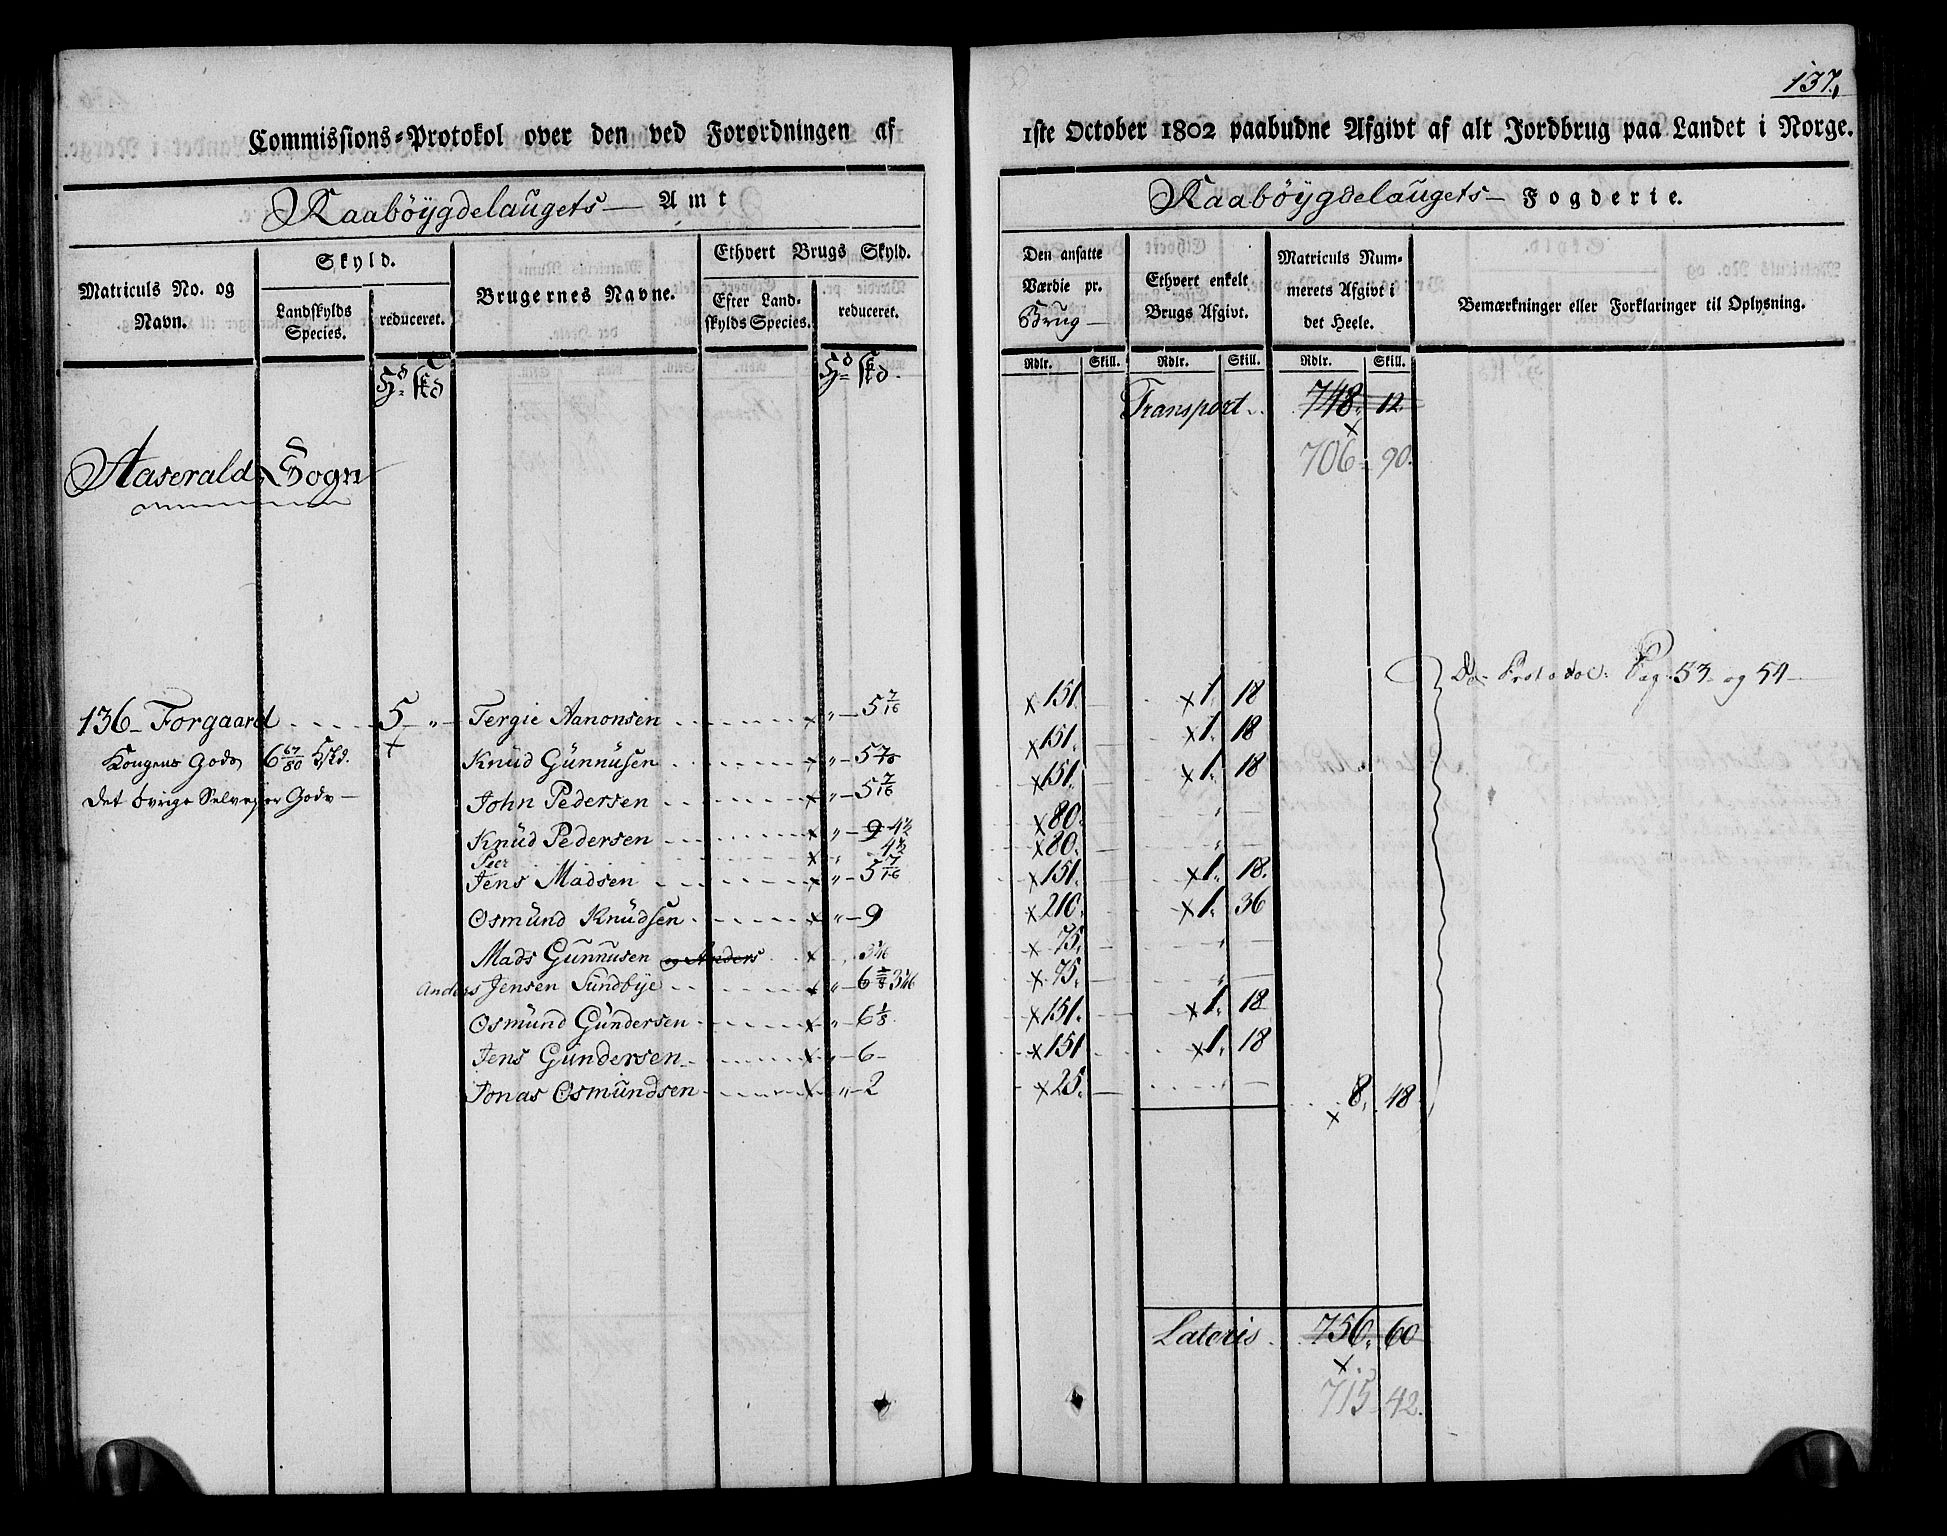 137.
Commissions-Protokol over den ved Forordningen af 1ste October 1802 paabudne Afgivt af alt Jordbrug paa Landet i Norge.
Raabøygdelaugets Amt
Raabøygdelaugets Fogderie.
Matriculs No. og Navn.
Skyld.
Landskylds Species.
reduceret.
Brugernes Navne.
Ethvert Brugs Skyld.
Efter Landskylds Species.
reduceret.
Den ansatte Værdie pr. Brug
Ethvert enkelt Brugs Afgivt.
Matriculs Nummerets Afgivt i det Heele.
Bemærkninger eller Forklaringer til Oplysning.
Rdlr. Skill. Rdlr. Skill. Rdlr. Skill.
Transport 748. 12.
706 90.
Aaserald Sogn
Protocol Pag. 53 og 54
136 Forgaard 5 " Tergie Aanonsen " 5 7/16 151. 1. 18
Kongens Gods 6 67/80 Knud Gunnusen " 5 7/16 151. 1. 18
Det øvrige Selveyer Gods John Pedersen " 5 7/16 151. 1. 18
Knud Pedersen " 9 4½ 80. "
Peer " 4½ 80. "
Jens Madsen " 5 7/16 151. 1. 18.
Osmund Knudsen " 9 210. 1. 36
Mads Gunnusen og Anders 75. "
Anders Jensen Sundbye " 6 75. "
Osmund Gundersen " 6 1/8 151. 1. 18
Jens Gundersen " 6 151 1. 18
Jonas Osmundsen " 2 25. " 8. 48
Lateris 756. 60
715 42.